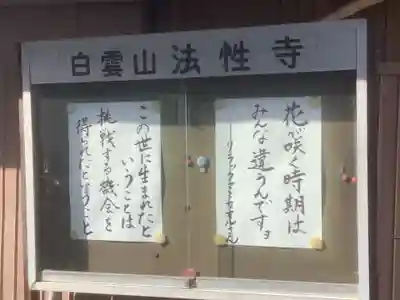 白雲山法性寺
花が咲く時期は
みんな違うんですョ
この世に生まれたと
いうことは
挑戦する機会を
得られたということ